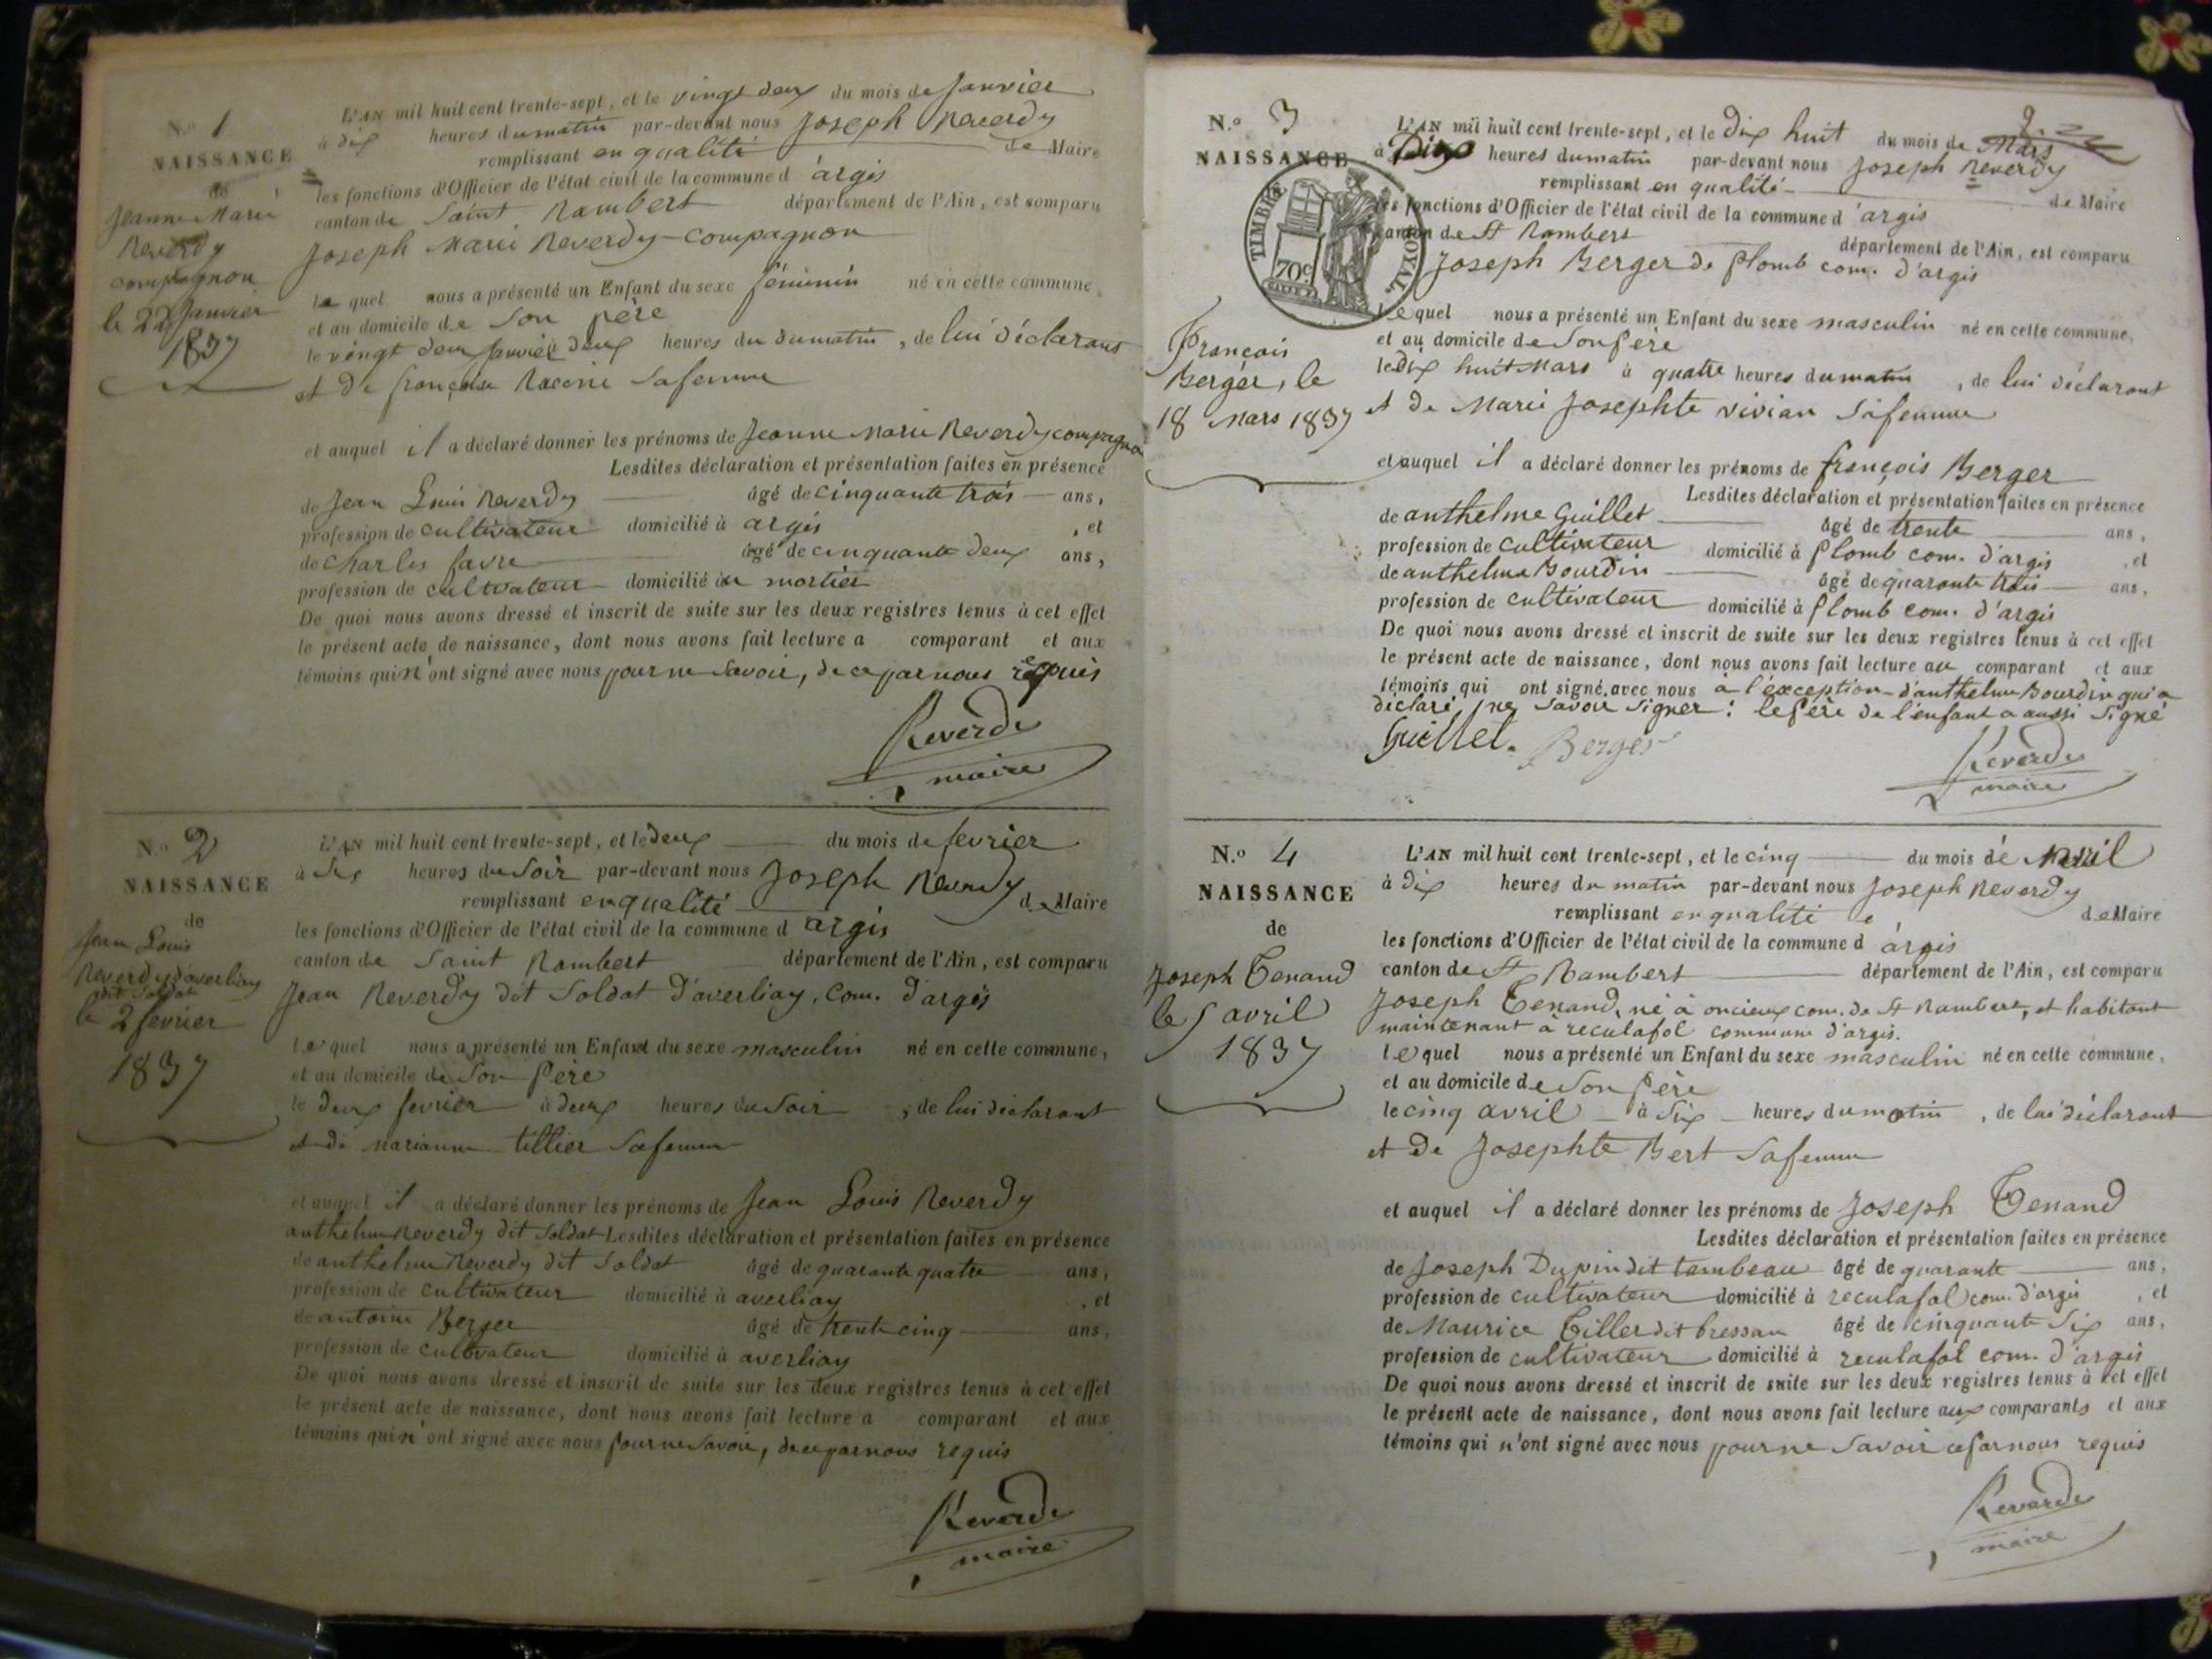 N.o 1
NAISSANCE
de
Jeanne Marie
Reverdy
compagnon
le 22 Janvier
1837
L'AN mil huit cent trente-sept, et le vingt deux du mois de Janvier
à dix heures du matin par-devant nous Joseph Reverdy
remplissant en qualité de Maire
les fonctions d'Officier de l'état civil de la commune d'argis
canton de Saint Rambert département de l'Ain, est comparu
Joseph Marie Reverdy-compagnon
lequel nous a présenté un Enfant du sexe féminin né en cette commune,
et au domicile de Son père
le vingt deux Janvier à deux heures du dumatin, de lui déclarant
et de françoise Racerie Safemme
et auquel il a déclaré donner les prénoms de Jeanne Marie Reverdy compagnon
Lesdites déclaration et présentation faites en présence
de Jean Louis Reverdy âgé de cinquante trois ans,
profession de cultivateur domicilié à argis, et
de Charles favre âgé de cinquante deux ans,
profession de cultivateur domicilié au mortier
De quoi nous avons dressé et inscrit de suite sur les deux registres tenus à cet effet
le présent acte de naissance, dont nous avons fait lecture a comparant et aux
témoins qui n'ont signé avec nous pour ne Savoir, de ce par nous requis
Reverdi
maire
N.o 2
NAISSANCE
de
Jean Louis
Reverdy d'averliay
dit Soldat
le 2 fevrier
1837
L'AN mil huit cent trente-sept, et le deux du mois de fevrier
à Six heures du Soir par-devant nous Joseph Reverdy
remplissant en qualité de Maire
les fonctions d'Officier de l'état civil de la commune d argis
canton de Saint Rambert département de l'Ain, est comparu
Jean Reverdy dit Soldat d'averliay, com. d'argis
lequel nous a présenté un Enfant du sexe masculin né en cette commune,
et au domicile de Son père
le deux fevrier à deux heures du Soir, de lui déclarant
et de marianne tillier Safemme
et auquel il a déclaré donner les prénoms de Jean Louis Reverdy
anthelme Reverdy dit Soldat Lesdites déclaration et présentation faites en présence
de anthelme Reverdy dit Soldat âgé de quarante quatre ans,
profession de cultivateur domicilié à averliay, et
de antoine Berger âgé de trente cinq ans,
profession de cultivateur domicilié à averliay
De quoi nous avons dressé et inscrit de suite sur les deux registres tenus à cet effet
le présent acte de naissance, dont nous avons fait lecture a comparant et aux
témoins qui n'ont signé avec nous pour ne Savoir, de ce par nous requis
Reverdi
maire
2
N.o 3
NAISSANCE
TIMBRE ROYAL
70c
François
Berger, le
18 Mars 1837
L'AN mil huit cent trente-sept, et le Dix huit du mois de Mars
à Dix heures du matin par-devant nous Joseph Reverdy
remplissant en qualité de Maire
les fonctions d'Officier de l'état civil de la commune d'argis
canton de St Rambert département de l'Ain, est comparu
Joseph Berger de Plomb com. d'argis
lequel nous a présenté un Enfant du sexe masculin né en cette commune,
et au domicile de Son Père
le dix huit Mars à quatre heures du matin, de lui déclarant
et de Marie Josephte vivian Safemme
et auquel il a déclaré donner les prénoms de françois Berger
Lesdites déclaration et présentation faites en présence
de anthelme Guillet âgé de trente ans,
profession de cultivateur domicilié à Plomb com. d'argis, et
de anthelme Bourdin âgé de quarante trois ans,
profession de cultivateur domicilié à Plomb com. d'argis
De quoi nous avons dressé et inscrit de suite sur les deux registres tenus à cet effet
le présent acte de naissance, dont nous avons fait lecture au comparant et aux
témoins qui ont signé avec nous à l'exception d'anthelme Bourdin qui a
déclaré ne Savoir Signer: le Père de l'enfant a aussi Signé
Guillet. Berger
Reverdi
maire
N.o 4
NAISSANCE
de
Joseph Tenand
le 5 avril
1837
L'AN mil huit cent trente-sept, et le cinq du mois de Avril
à dix heures du matin par-devant nous Joseph Reverdy
remplissant en qualité de Maire
les fonctions d'Officier de l'état civil de la commune d argis
canton de St Rambert département de l'Ain, est comparu
Joseph Tenand, né à oncieux com. de St Rambert, et habitant
maintenant a reculafol commune d'argis.
lequel nous a présenté un Enfant du sexe masculin né en cette commune,
et au domicile de Son Père
le cinq avril à Six heures du matin, de lui déclarant
et de Josephte Bert Safemme
et auquel il a déclaré donner les prénoms de Joseph Tenand
Lesdites déclaration et présentation faites en présence
de Joseph Dupin dit tambeau âgé de quarante ans,
profession de cultivateur domicilié à reculafol com. d'argis, et
de Maurice Tiller dit bressan âgé de cinquante Six ans,
profession de cultivateur domicilié à reculafol com. d'argis
De quoi nous avons dressé et inscrit de suite sur les deux registres tenus à cet effet
le présent acte de naissance, dont nous avons fait lecture aux comparants et aux
témoins qui n'ont signé avec nous pour ne Savoir ce par nous requis
Reverdi
maire